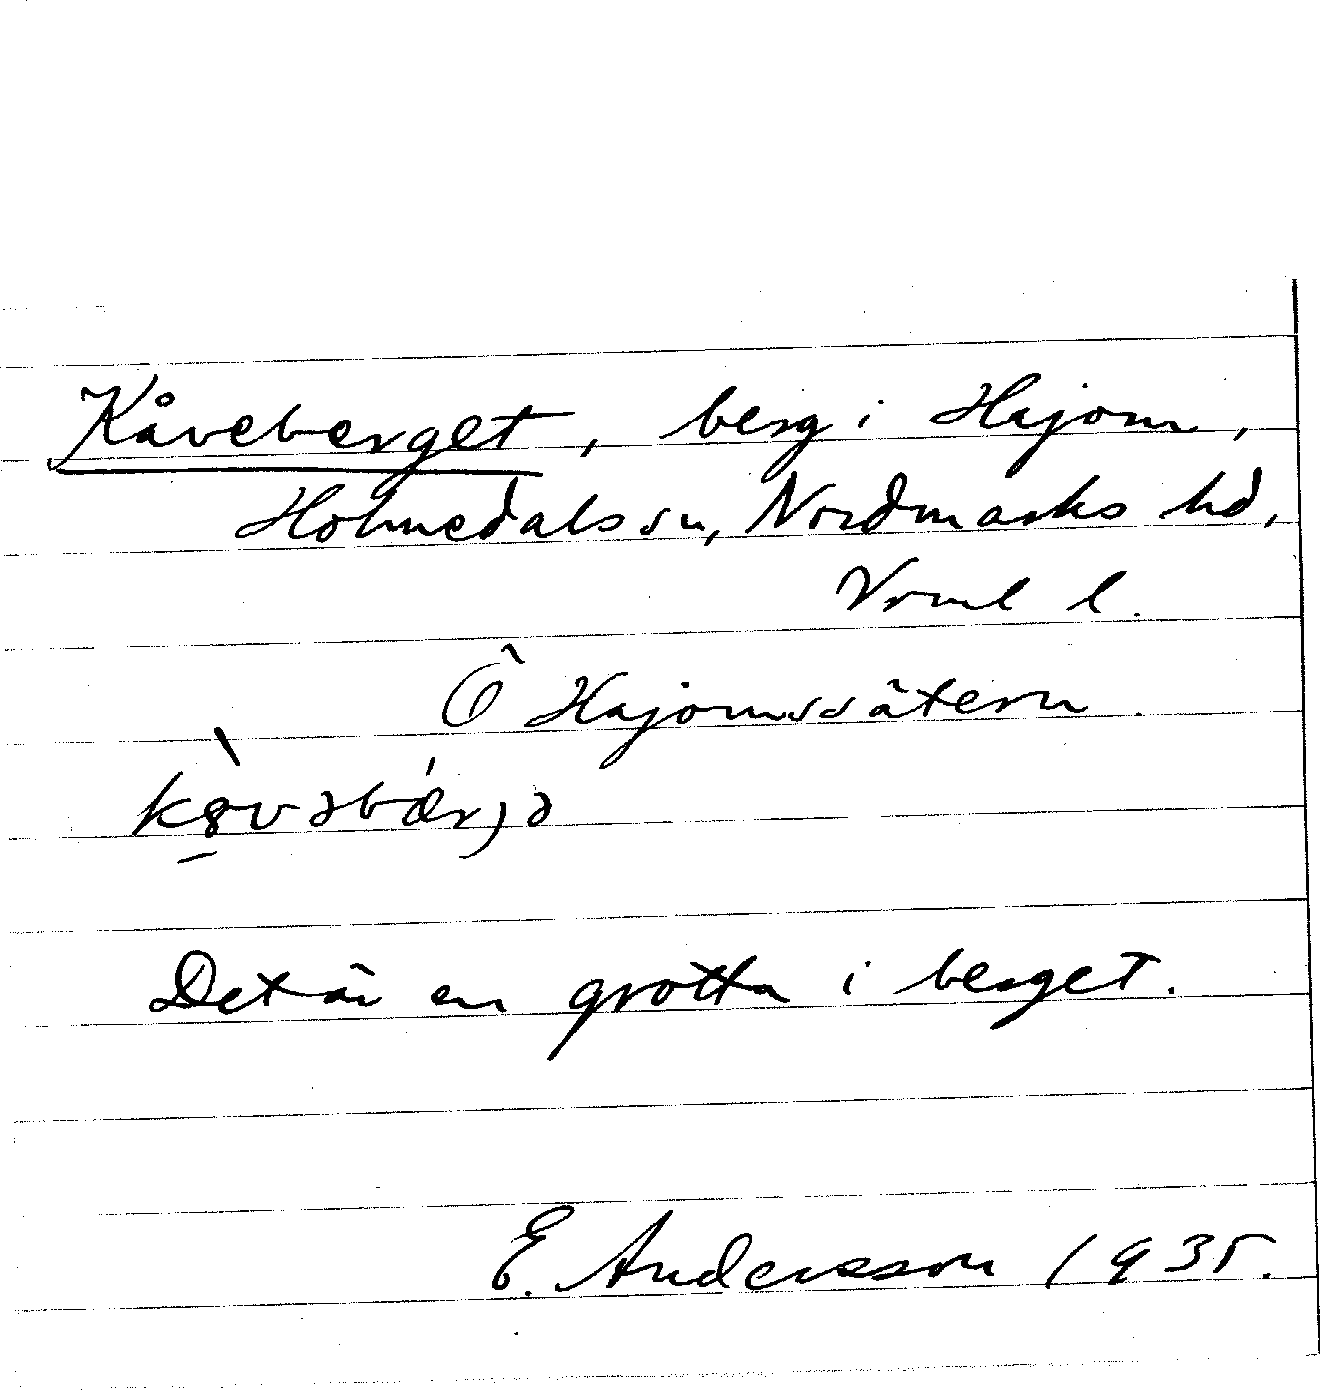 Kåveberget, berg i Hajom,
Holmedals sn, Nordmarks hd,
Vrml l.
Ö Hajomssätern.
Det är en grotta i berget.
E. Andersson 1935.